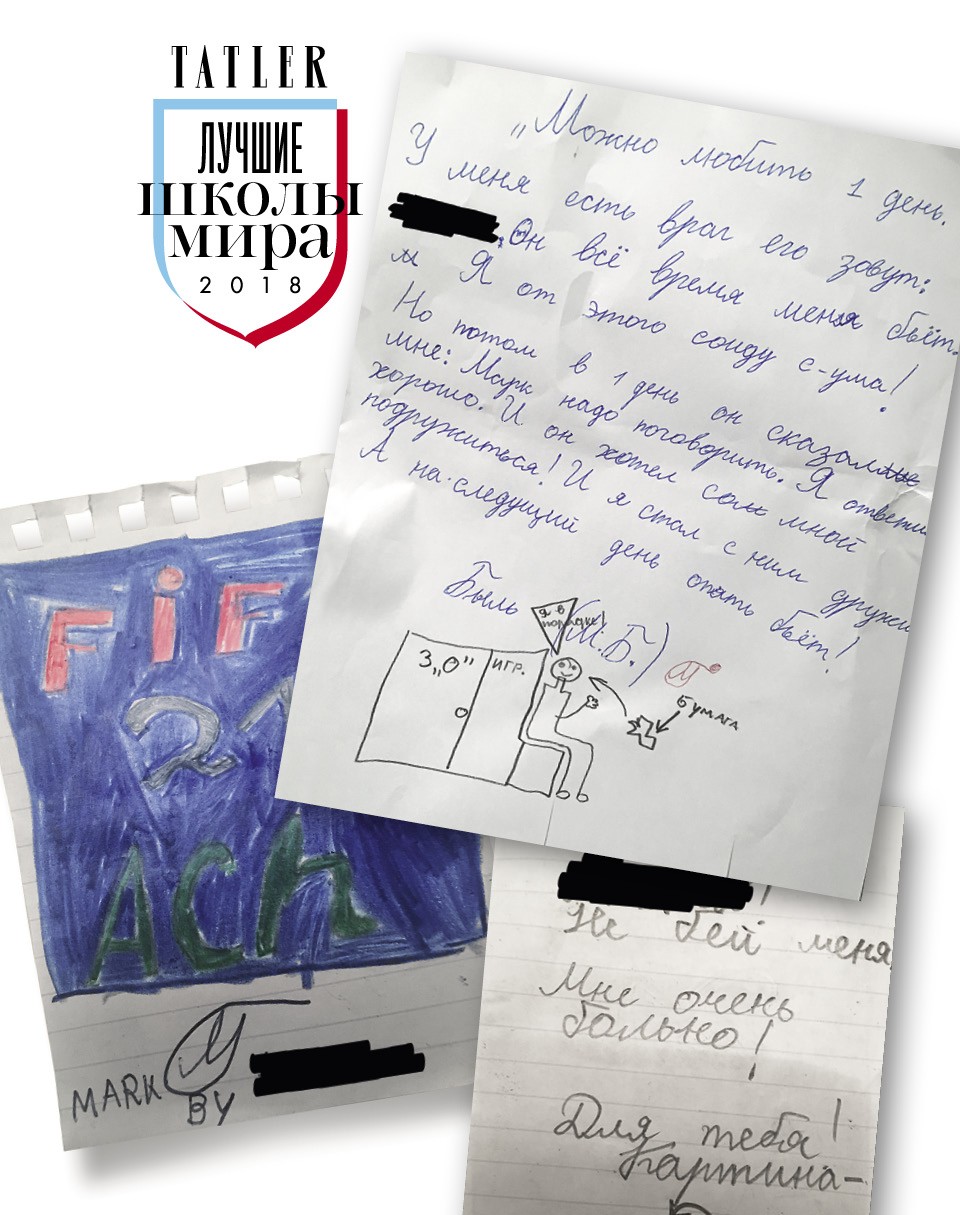 TATLER
ЛУЧШИЕ
ШКОЛЫ
мира
2018
„Можно любить 1 день.
У меня есть враг его зовут:
Он всё время меня бьёт.
м Я от этого соиду с-ума!
Но потом в 1 день он сказал
мне: Марк надо поговорить. Я ответи
хорошо. И он хотел сомной
подружиться! И я стал с ним дружи
А на.следущий день опять бьёт!
Быль (М.Б.)
Я В
порядке!
3„О"
ИГР.
БУМАГА
FiF
21
АСК
MARK
BY
Не бей меня
Мне очень
больно!
Для тебя!
Картина-